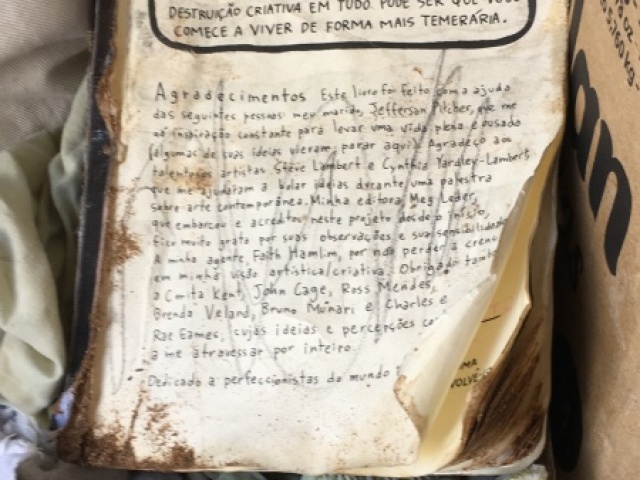 DESTRUIÇÃO CRIATIVA EM TUDO. PODE SER QUE VOCÊ
COMECE A VIVER DE FORMA MAIS TEMERÁRIA.
Agradecimentos Este livro foi feito com a ajuda
das seguintes pessoas: meu marido, Jefferson Pitcher, que me
dá inspiração constante para levar uma vida plena e ousada
(algumas de suas ideias vieram parar aqui). Agradeço aos
talentosos artistas Steve Lambert e Cynthia Yardley-Lambert,
que me ajudaram a bolar ideias durante uma palestra
sobre arte contemporânea. Minha editora, Meg Leder,
que embarcou e acreditou neste projeto desde o início,
fico muito grata por suas observações e sua sensibilidade
A minha agente, Faith Hamlin, por não perder a crenç
em minha visão artística/criativa. Obrigado també
a Corita Kent, John Cage, Ross Mendes,
Brenda Veland, Bruno Munari e Charles e
Rae Eames, cujas ideias e percepções co
a me atravessar por inteiro.
Dedicado a perfeccionistas do mundo
UMA
VOLVE
oz
5,760 kg
an